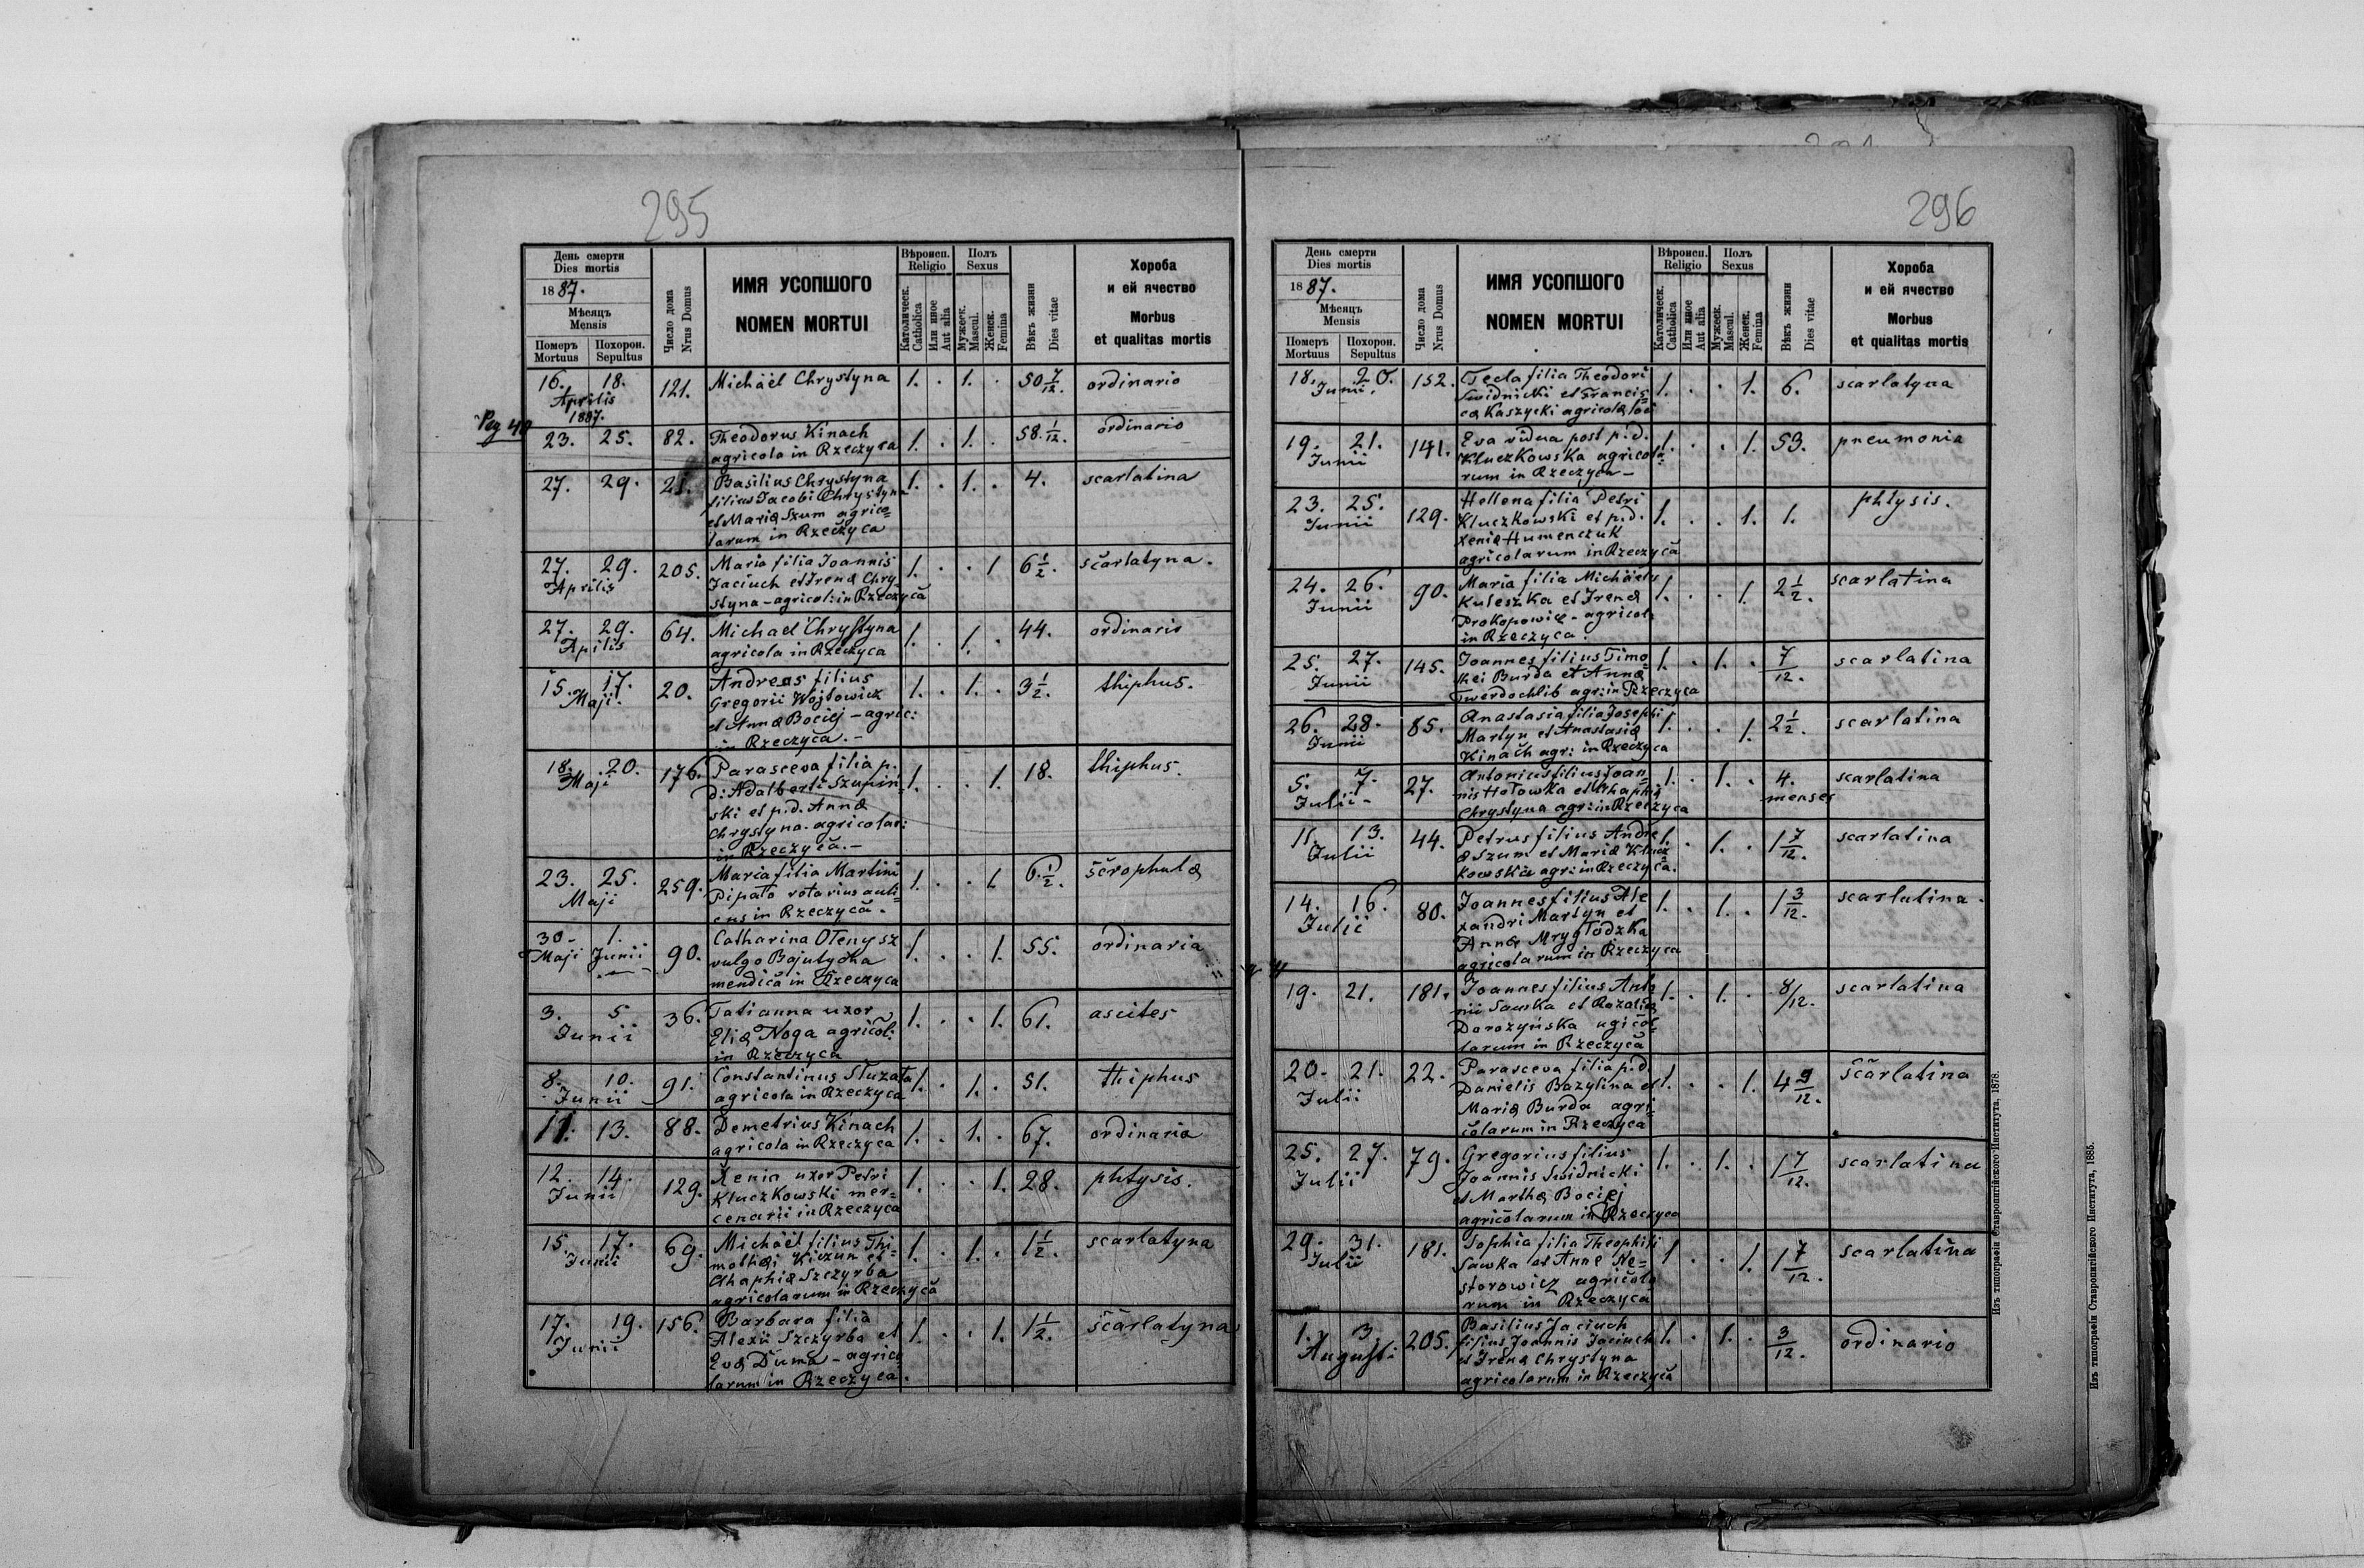 295
День смерти
Dies mortis
1887.
Мѣсяць
Mensis
Померъ
Mortuus
Похорон.
Sepultus
Число дома
Nrus Domus
ИМЯ УСОПШОГО
NOMEN MORTUI
Вѣроисп.
Religio
Католическ.
Catholica
Или иное
Aut alia
Полъ
Sexus
Мужеск.
Mascul.
Женск.
Femina
Вѣкъ жизни
Dies vitae
Хороба
и ей ячество
Morbus
et qualitas mortis
16. 18. 121. Michäel Chrystyna 1. . 1. . 50 7/12. ordinario
Aprilis
1887.
23. 25. 82. Theodorus Kinach 1. . 1. . 58. 1/12. ordinario
agricola in Rzeczyca
27. 29. 21. Basilius Chrystyna 1. . 1. . 4. scarlatina
filius Jacobi Chrystyna
et Mariæ Szum agrico=
larum in Rzeczyca
27. 29. 205. Maria filia Joannis 1. . . 1 6 1/2. scarlatyna.
Aprilis Jaciuch et Irenæ Chry-
styna - agricol: in Rzeczyca
27. 29. 64. Michael Chrystyna 1. . 1. . 44. ordinario
Apilis agricola in Rzeczyca
15. 17. 20. Andreas filius 1. . 1. . 3 1/2. thiphus.
Maji. Gregorii Wojtowicz
et Annæ Bociej - agric:
in Rzeczyca. -
18. 20. 176. Parasceva filia p. 1. . . 1. 18. thiphus.
Maji d: Adalberti Szupin=
ski et p.d. Annæ
Chrystyna. agricolar:
in Rzeczyca. -
23. 25. 259. Maria filia Martini 1. . . 1 6. 1/2. scrophulæ
Maji Pipało rotarius
in Rzeczyca.
30 - 1. 90. Catharina Ołenysz 1. . . 1. 55. ordinaria
Maji Junii vulgo
mendica in Rzeczyca
3. 5 36. Tatianna uxor 1. . . 1. 61. ascites
Junii Eliæ Noga agricol:
in Rzeczyca
8. 10. 91. Constantinus Służała 1. . 1. . 51. thiphus
Junii agricola in Rzeczyca
11. 13. 88. Demetrius Kinach 1. . 1. . 67. ordinaria
agricola in Rzeczyca
12. 14. 129. Xenia uxor Petri 1. . . 1. 28. phtysis.
Junii Kluczkowski mer=
cenarii in Rzeczyca
15. 17. 69. Michäel filius Thi- 1. . 1. . 1 1/2. scarlatyna
Junii mothei Kiczun et
Ahaphiæ Szczyrba
agricolarum in Rzeczyca
17. 19. 156. Barbara filia 1. . . 1. 1 1/2. scarlatyna
Junii Alexii Szczyrba et
Evæ Duma - agrico
larum in Rzeczyca.
296
День смерти
Dies mortis
1887.
Мѣсяць
Mensis
Померъ
Mortuus
Похорон.
Sepultus
Число дома
Nrus Domus
ИМЯ УСОПШОГО
NOMEN MORTUI
Вѣроисп.
Religio
Католическ.
Catholica
Или иное
Aut alia
Полъ
Sexus
Мужеск.
Mascul.
Женск.
Femina
Вѣкъ жизни
Dies vitae
Хороба
и ей ячество
Morbus
et qualitas mortis
18. 20. 152. Tecla filia Theodori 1. . . 1. 6. scarlatyna
Junii. Swidnicki et Francis=
cæ Kaszycki agricolæ
19. 21. 141. Eva vidua post p.d. 1. . . 1. 53. pneumonia
Junii Kluczkowska agricola=
rum in Rzeczyca -
23. 25. 129. Hellena filia Petri 1. . . 1. 1. phtysis.
Junii Kluczkowski et p.d.
Xeniæ Humenczuk
agricolarum in Rzeczyca
24. 26. 90. Maria filia Michäelis 1. . . 1. 2 1/2. scarlatina
Junii Kuleszka et Irenæ
Prokopowicz - agricol:
in Rzeczyca.
25. 27. 145. Joannes filius Timo 1. . 1. . 7/12. scarlatina
Junii thei Burda et Annæ
Twerdochlib agr: in Rzeczyca
26. 28. 85. Anastasia filia Josephi 1. . . 1. 2 1/2. scarlatina
Junii Martyn et Anastasiæ
Kinach agr: in Rzeczyca
5. 7. 27. Antonius filius Joan= 1. . 1. . 4. scarlatina
Julii - nis Hołowka et Ahaphiæ menses
Chrystyna agr: in Rzeczyca
11. 13. 44. Petrus filius Andre 1. . 1. . 1 7/12. scarlatina
Julii æ Szum et Mariæ Klucz
kowska agr: in Rzeczyca.
14. 16. 80. Joannes filius Ale 1. . 1. . 1 3/12. scarlatina.
Julii xandri Martyn et
Annæ Mrygłodzka
agricolarum in Rzeczyca
19. 21. 181. Joannes filius Anto 1. . 1. . 8/12. scarlatina
nii Sawka et Rozaliæ
Darozyńska agicol
larum in Rzeczyca
20. 21. 22. Parasceva filia p.d. 1. . . 1. 4 9/12. scarlatina
Julii Danielis Bazylina et
Mariæ Burda agri
colarum in Rzeczyca
25. 27. 79. Gregorius filius 1. . 1. . 1 7/12. scarlatina
Julii Joannis Swidnicki
et Marthæ Bociej
agricolarum in Rzeczyca
29. 31. 181. Sophia filia Theophili 1 . . 1. 1 7/12. scarlatina
Julii Sawka et Anne Ne=
storowicz agricola
rum in Rzeczyca
1. 3. 205. Basilius Jaciuch 1. . 1. . 3/12. ordinario
Augusti filius Joannis Jaciuch
et Irenæ Chrystyna
agricolarum in Rzeczyca
Изъ типографіи Ставропигійского Института, 1878.
Изъ типографіи Ставропигійского Института, 1885.